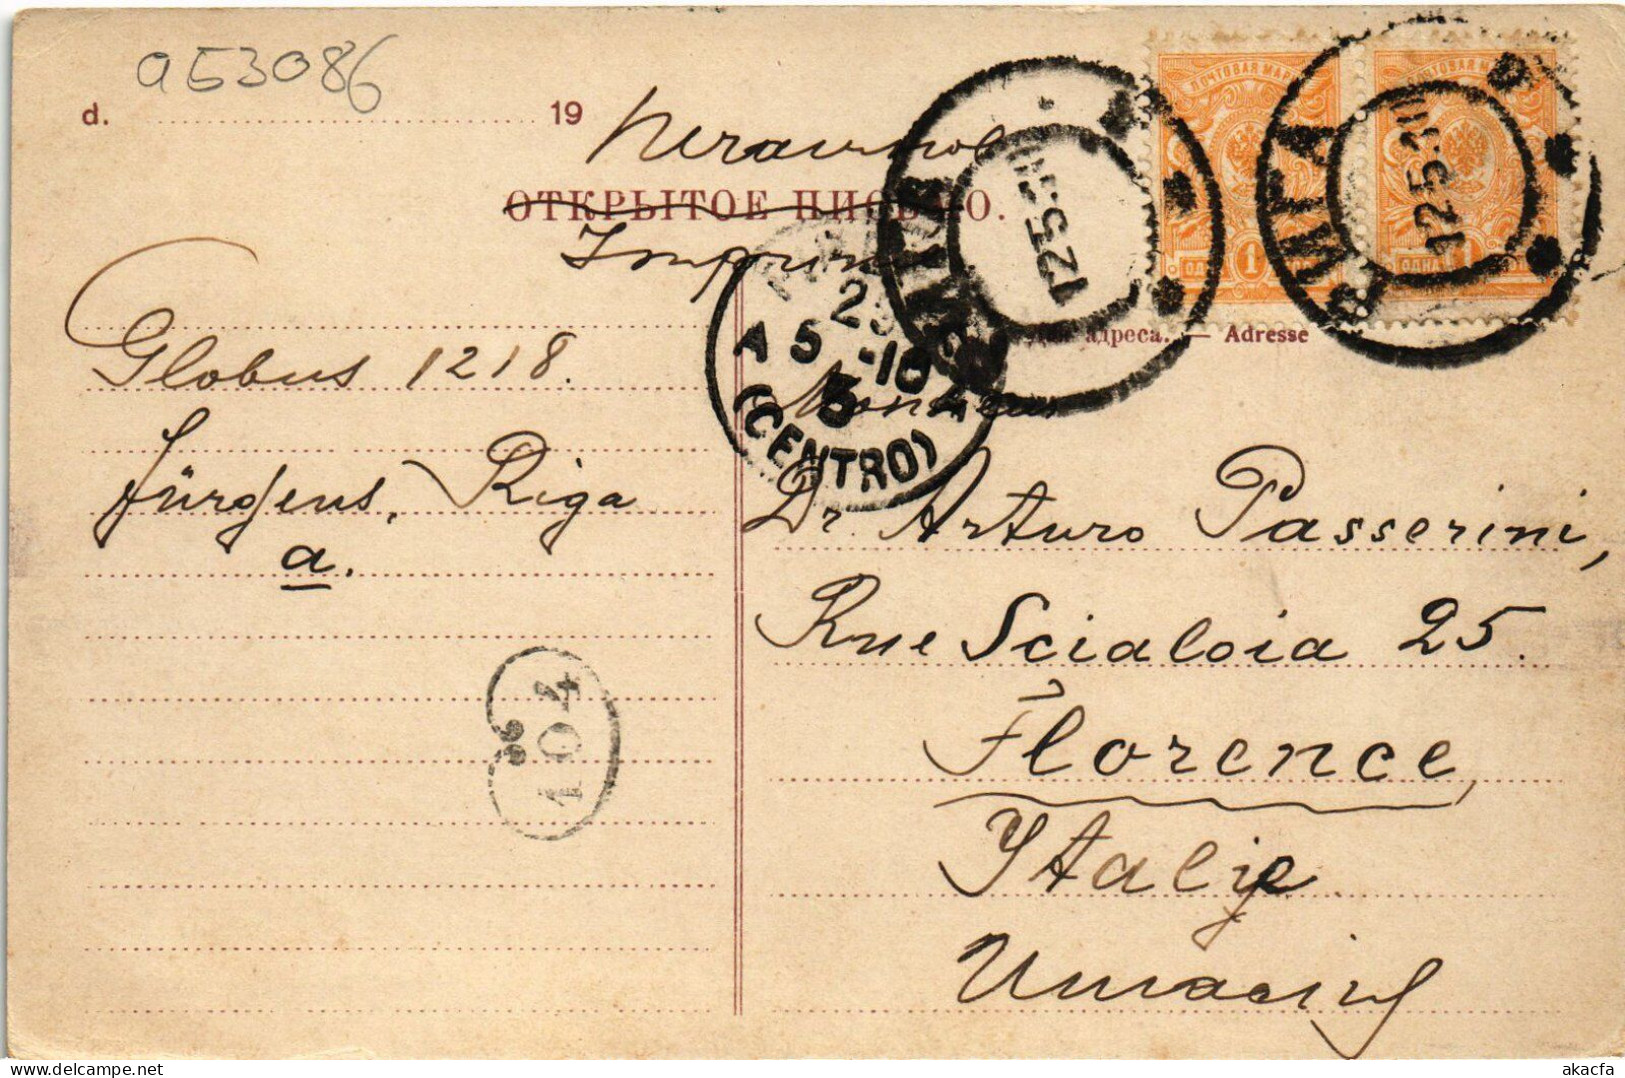 a53086
d. 19
Печатное
ОТКРЫТОЕ ПИСЬМО.
Imprimé
РИГА
12 5.
РИГА
12 5.
ПОЧТОВАЯ МАРКА
ОДНА 1
ОДНА 1
25
A 5 -10
(CENTRO)
Для адреса. — Adresse
Globus 1218.
Jürgens, Riga
a.
Monsieur
Dr Arturo Passerini,
Rue Scialoia 25.
Florence,
Italie
Италія
104
akacfa